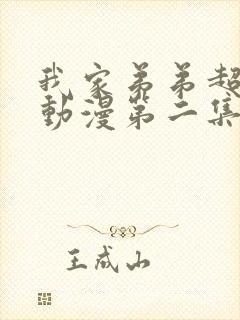 我家弟弟超
動漫第二集
王成山